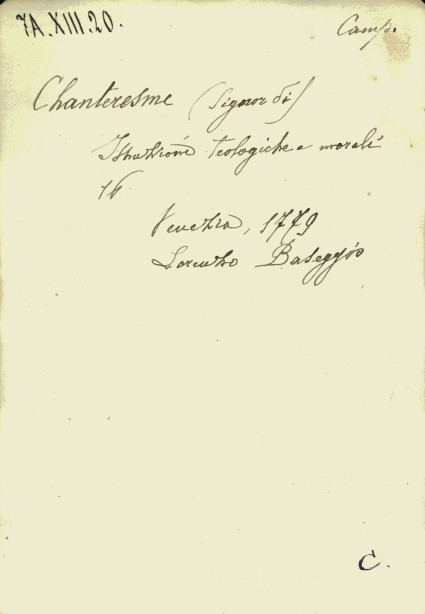 7A.XIII.20.
Camp.
Chanteresme (Signor di)
Istruzione teologiche e morali
Venezia, 1779
Lorenzo Baseggio
C.